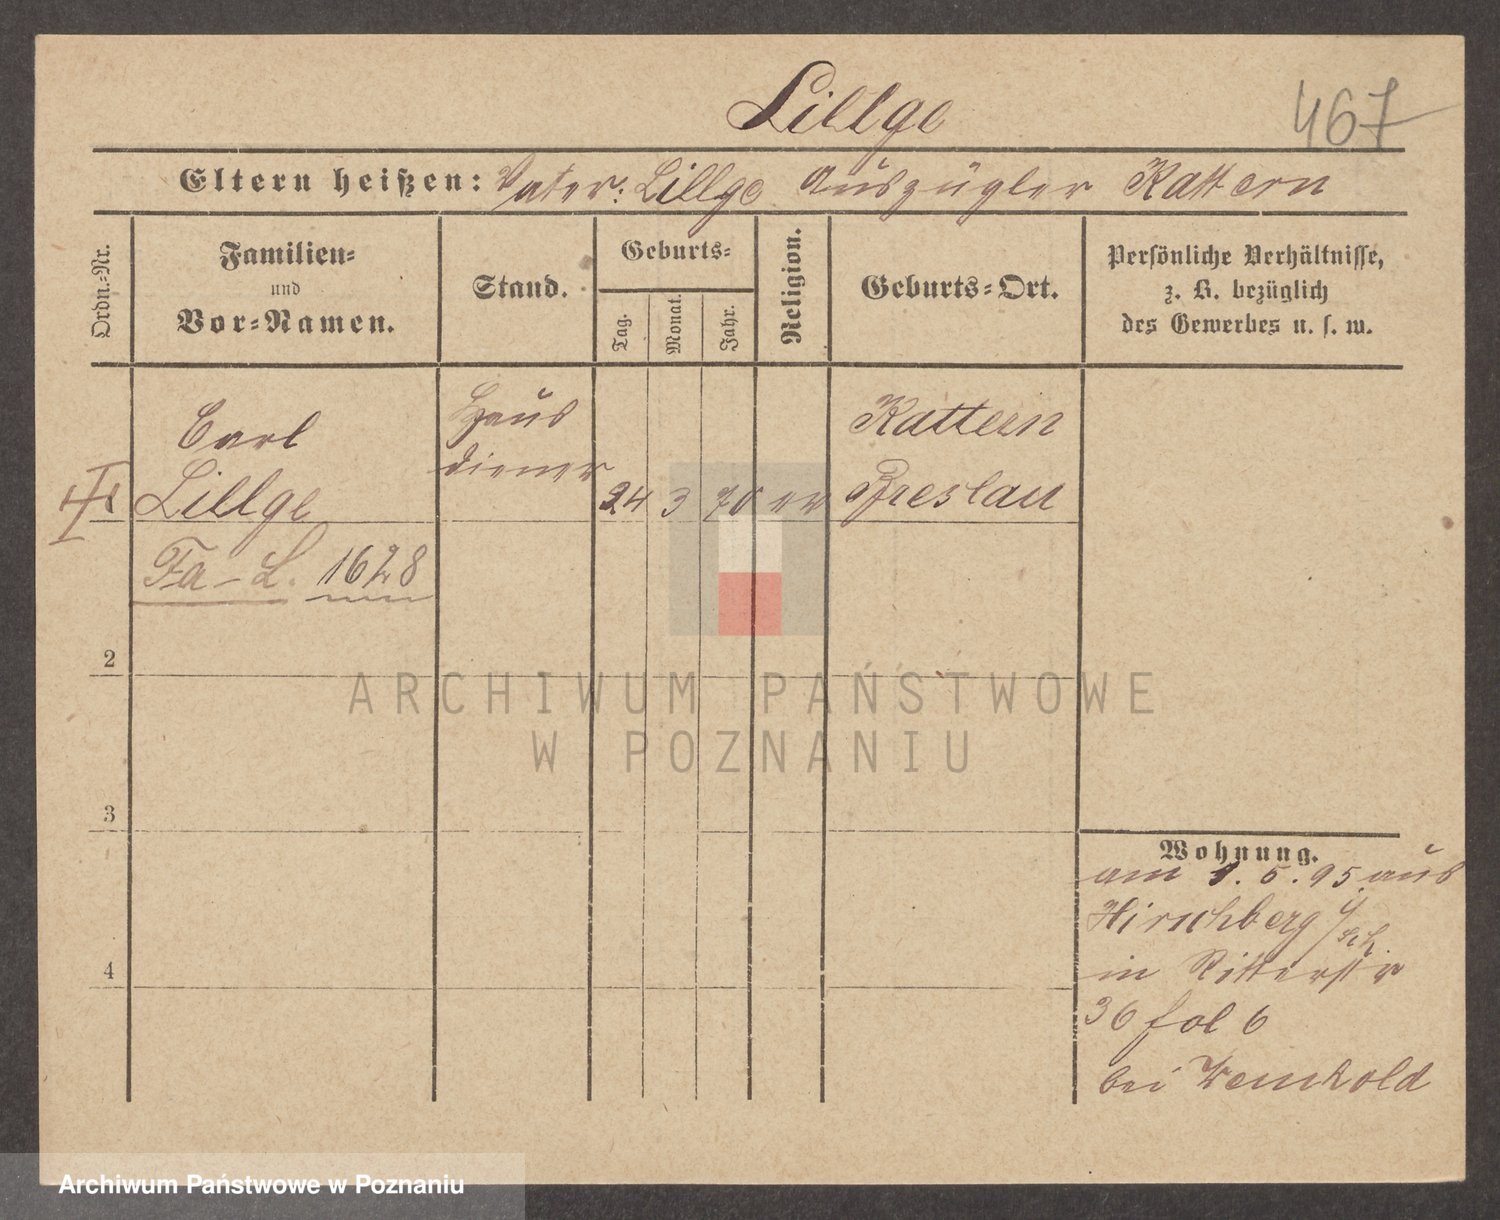 Lillge
467
Eltern heißen: Vater: Lillge Auszügler Kattern
Ordn.-Nr.
Familien-
und
Vor-Namen.
Stand.
Geburts-
Tag.
Monat.
Jahr.
Religion.
Geburts-Ort.
Persönliche Verhältnisse,
z. B. bezüglich
des Gewerbes u. s. w.
Carl
Lillge
Fa-L. 1628
Haus
diener
24 3 70 ev
Kattern
Breslau
2
3
4
Wohnung.
am 1.5.95 aus
Hirschberg i/
Sch.
in Ritterstr
36 fol 6
bei
ARCHIWUM PAŃSTWOWE
W POZNANIU
Archiwum Państwowe w Poznaniu